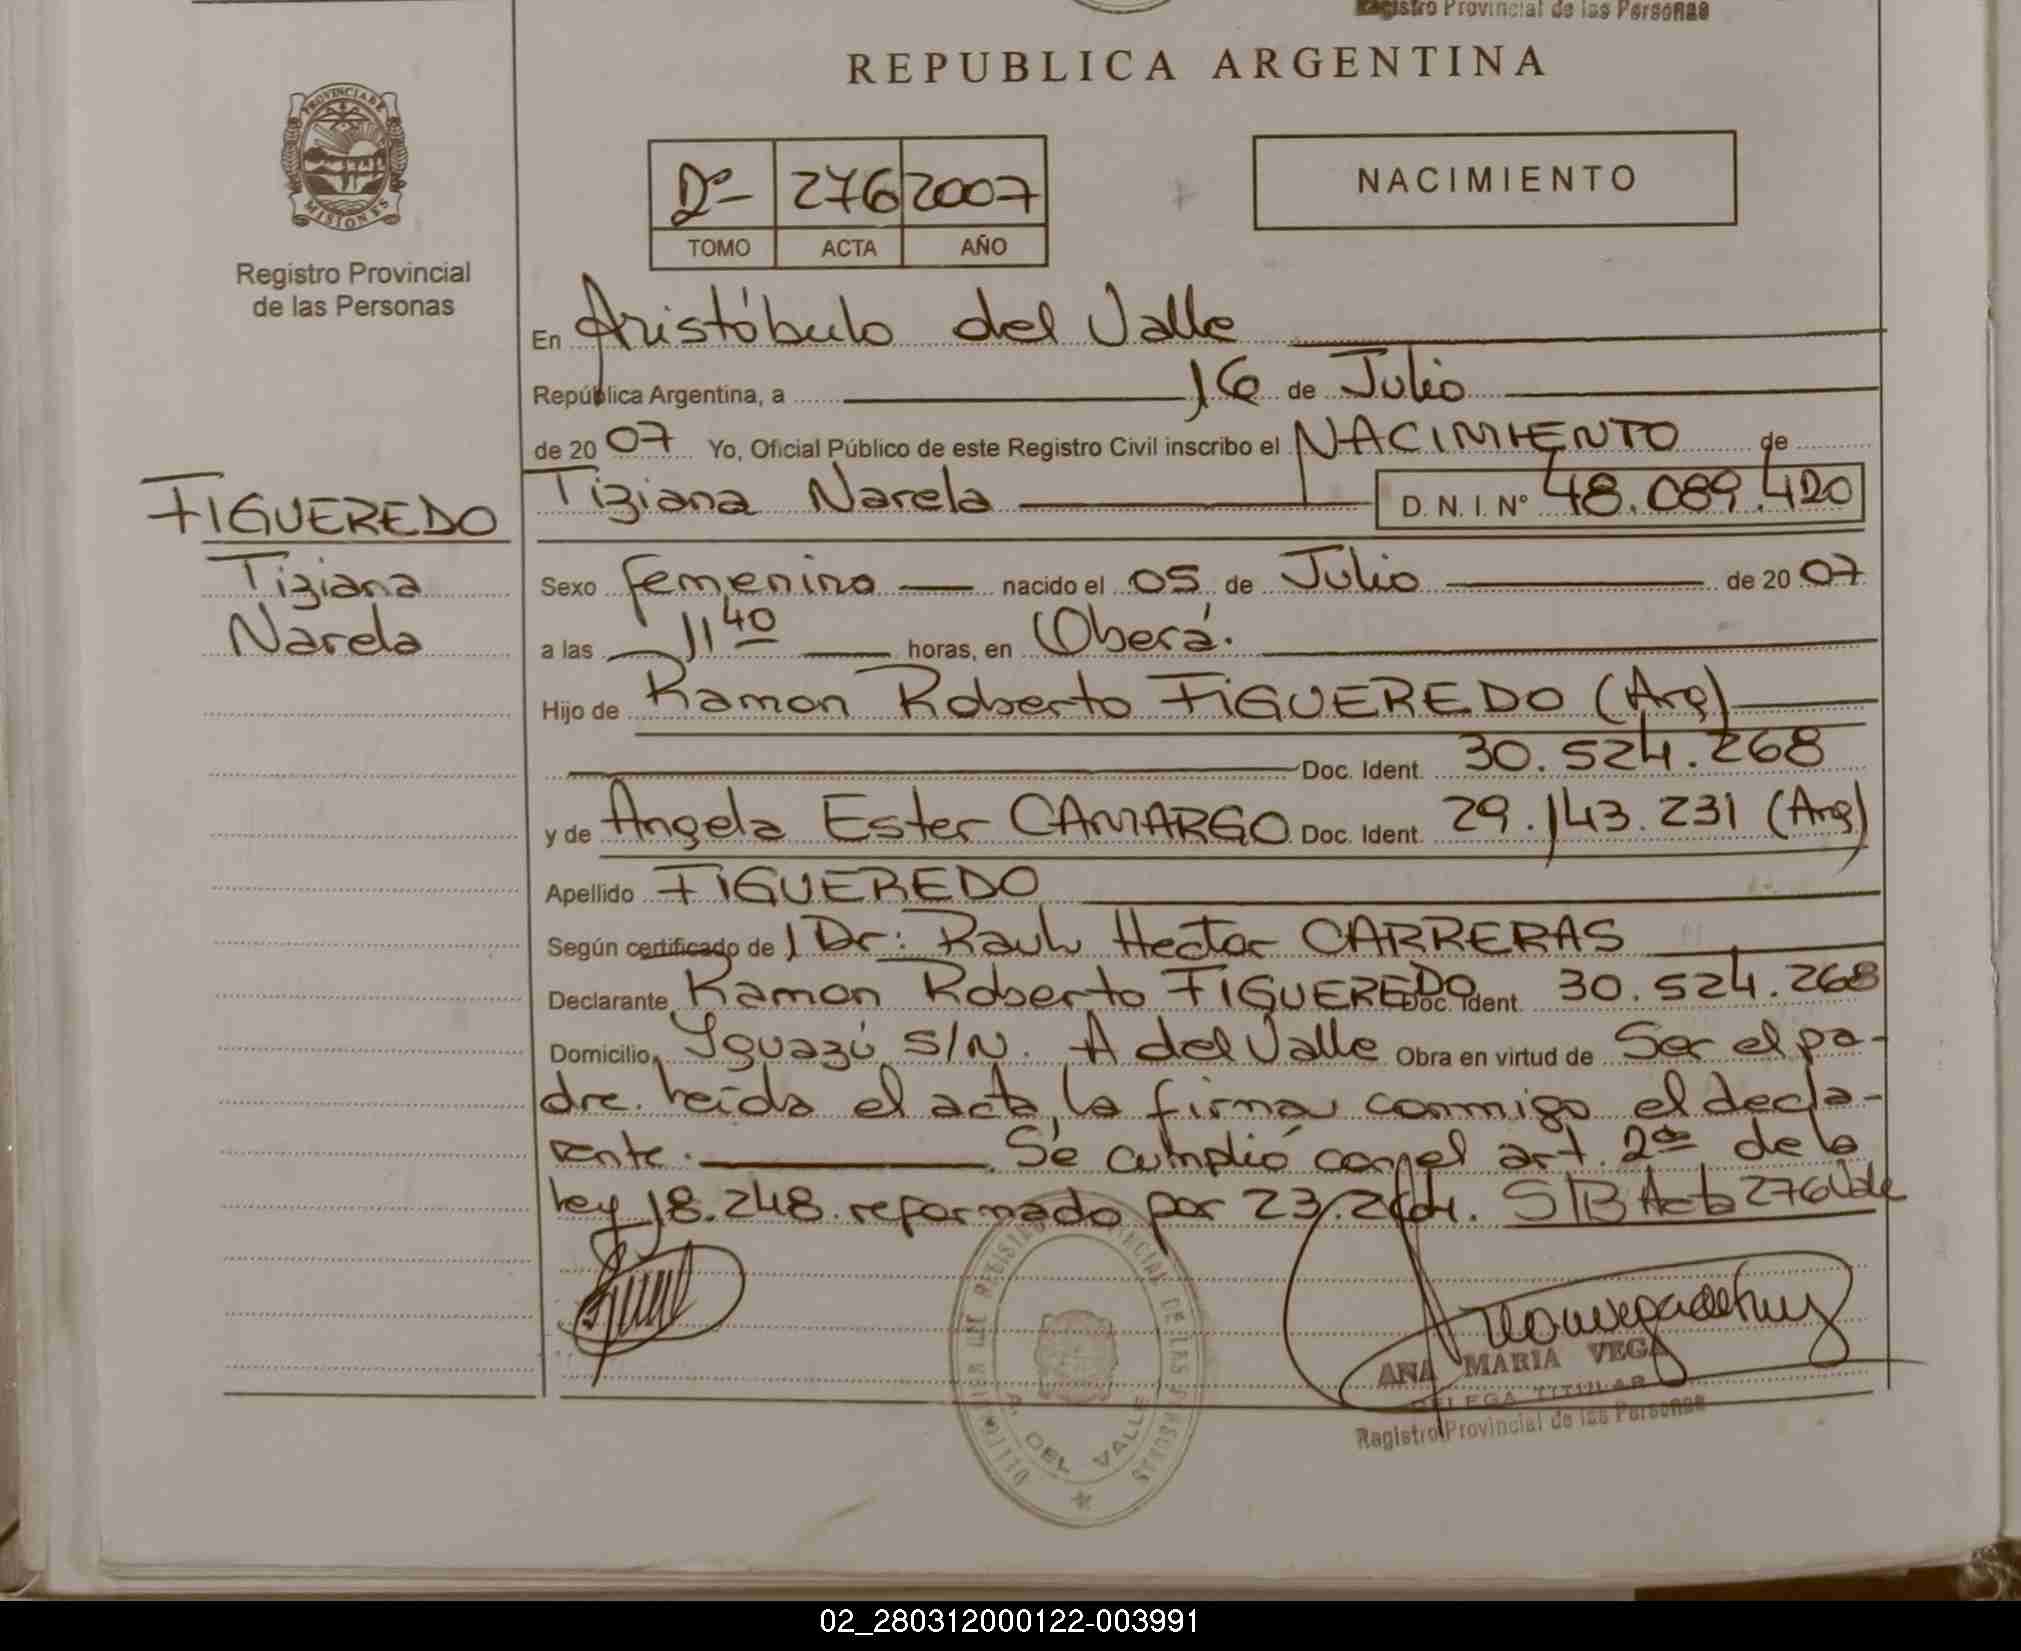 Registro Provincial de las Personas
REPUBLICA ARGENTINA
PROVINCIA DE MISIONES
Registro Provincial
de las Personas
2º 276 2007
TOMO ACTA AÑO
NACIMIENTO
En Aristóbulo del Valle
República Argentina, a 16 de Julio
de 2007 Yo, Oficial Público de este Registro Civil inscribo el NACIMIENTO de
Tiziana Narela D. N. I. Nº 48.089.420
FIGUEREDO
Tiziana
Narela
Sexo femenino nacido el 05 de Julio de 2007
a las 11 40 horas, en Oberá.
Hijo de Ramon Roberto FIGUEREDO (Arg)
Doc. Ident. 30.524.268
y de Angela Ester CAMARGO Doc. Ident. 29.143.231 (Arg)
Apellido FIGUEREDO
Según certificado de Dr: Raul Hector CARRERAS
Declarante Ramon Roberto FIGUEREDO Doc. Ident. 30.524.268
Domicilio Iguazú S/N. A del Valle Obra en virtud de Ser el pa-
dre. Leída el acta, la firma conmigo el decla-
rante. Se cumplió con el art. 2º de la
Ley 18.248 reformado por 23.264. S/B Acta 276 Vale
A. DEL VALLE
ANA MARIA VEGA
DELEGA TITULAR
Registro Provincial de las Personas
02_280312000122-003991